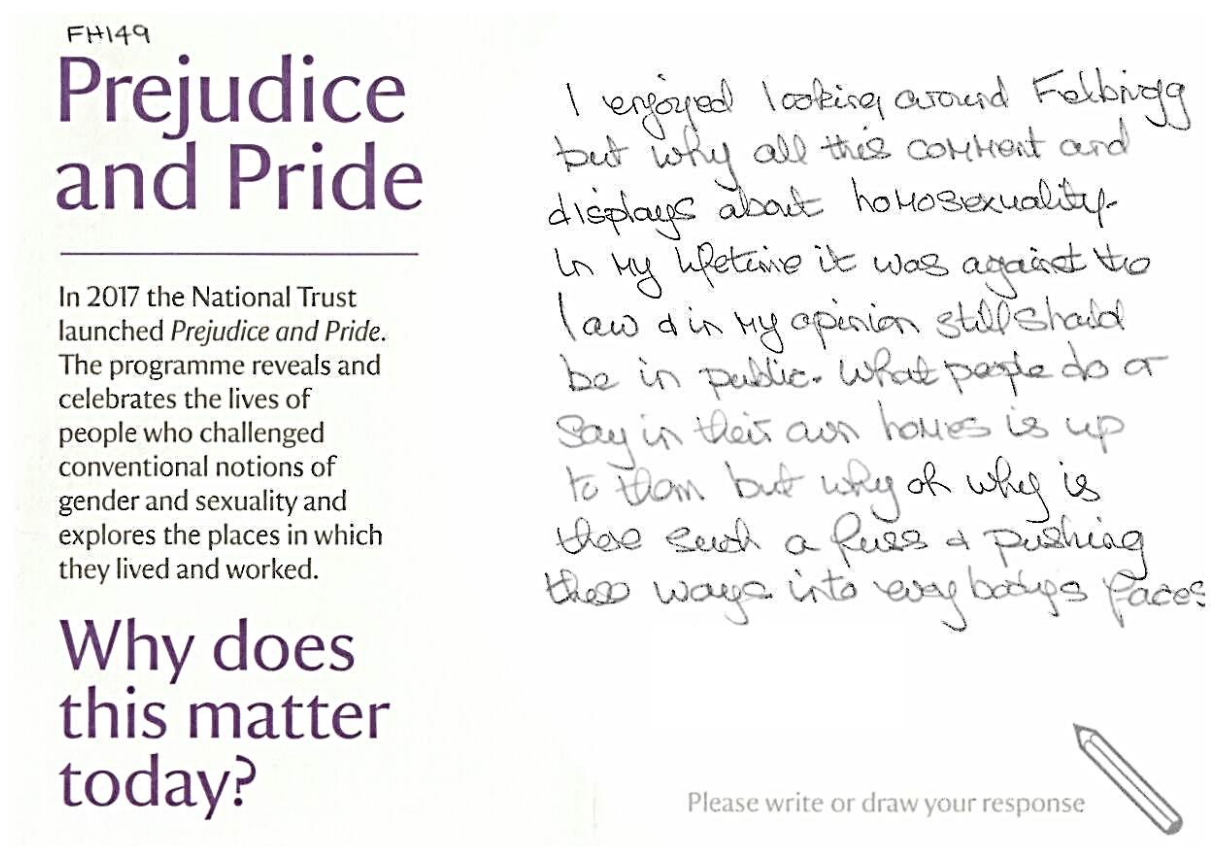 FH149
Prejudice
and Pride
In 2017 the National Trust
launched Prejudice and Pride.
The programme reveals and
celebrates the lives of
people who challenged
conventional notions of
gender and sexuality and
explores the places in which
they lived and worked.
Why does
this matter
today?
I enjoyed looking around Felbrigg
but why all this comment and
displays about homosexuality.
In my lifetime it was against the
law & in my opinion still should
be in public. What people do or
say in their own homes is up
to them but why oh why is
there such a fuss & pushing
these ways into everybodys faces
Please write or draw your response